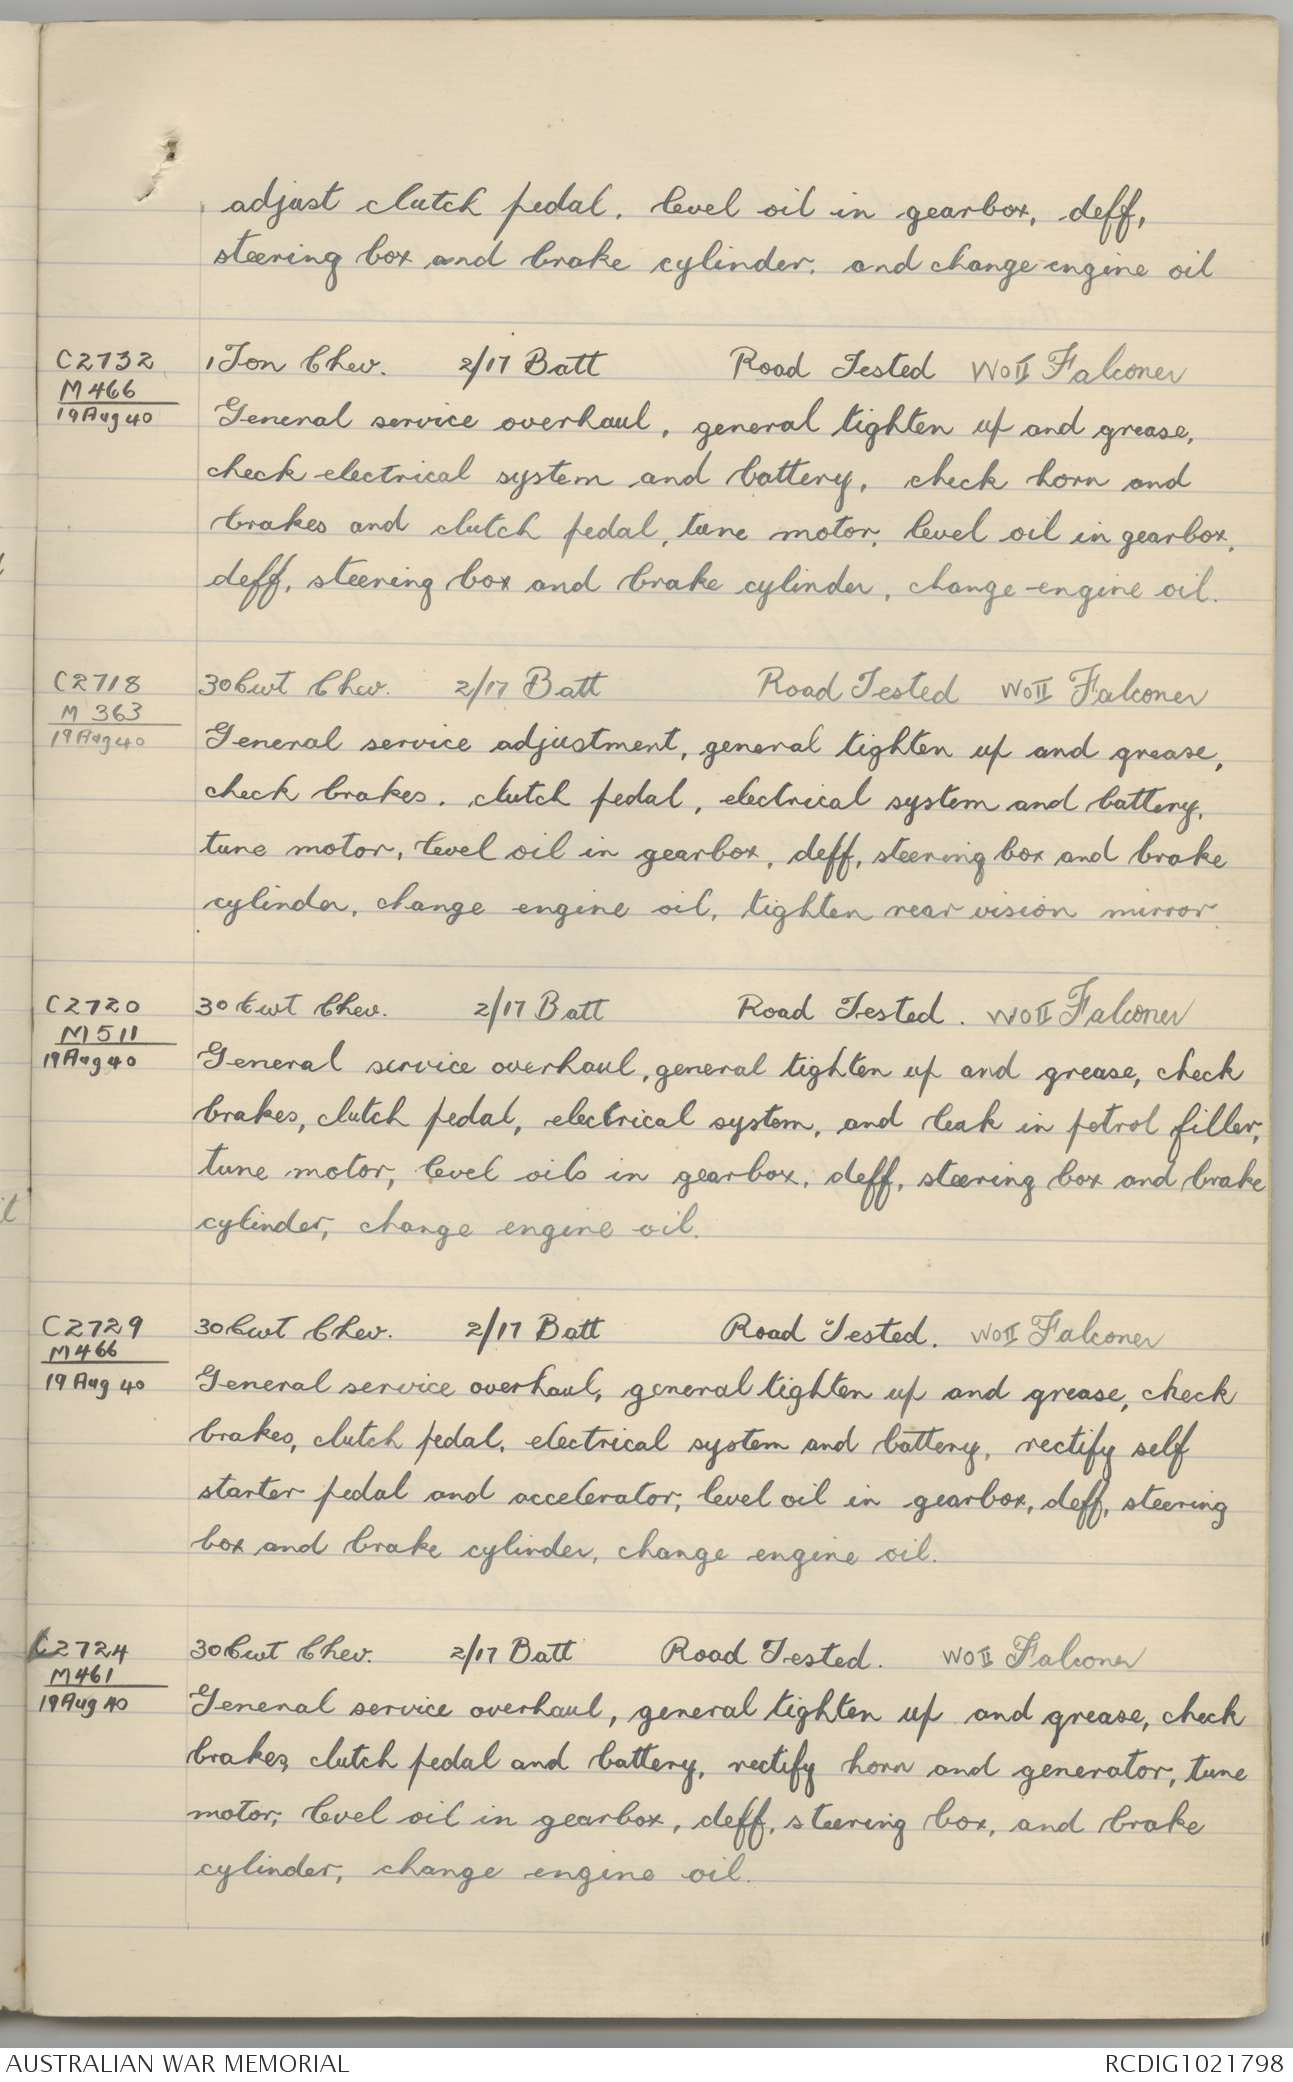 adjust clutch pedal, level oil in gearbox, deff,
steering box and brake cylinder, and change engine oil
C2732 1 Ton Chev. 2/17 Batt Road Tested WOII Falconer
M466
19 Aug 40 General service overhaul, general tighten up and grease,
check electrical system and battery, check horn and
brakes and clutch pedal, tune motor, level oil in gearbox,
deff, steering box and brake cylinder, change engine oil.
C2718 30 Cwt Chev. 2/17 Batt Road Tested WOII Falconer
M 363
19 Aug 40 General service adjustment, general tighten up and grease,
check brakes, clutch pedal, electrical system and battery,
tune motor, level oil in gearbox, deff, steering box and brake
cylinder, change engine oil, tighten rear vision mirror.
C2720 30 Cwt Chev. 2/17 Batt Road Tested. WOII Falconer
M511
19 Aug 40 General service overhaul, general tighten up and grease, check
brakes, clutch pedal, electrical system, and leak in petrol filler,
tune motor, level oils in gearbox, deff, steering box and brake
cylinder, change engine oil.
C2729 30 Cwt Chev. 2/17 Batt Road Tested. WOII Falconer
M466
19 Aug 40 General service overhaul, general tighten up and grease, check
brakes, clutch pedal, electrical system and battery, rectify self
starter pedal and accelerator, level oil in gearbox, deff, steering
box and brake cylinder, change engine oil.
C2724 30 Cwt Chev. 2/17 Batt Road Tested. WOII Falconer
M461
19 Aug 40 General service overhaul, general tighten up and grease, check
brakes, clutch pedal and battery, rectify horn and generator, tune
motor, level oil in gearbox, deff, steering box, and brake
cylinder, change engine oil.
AUSTRALIAN WAR MEMORIAL RCDIG1021798